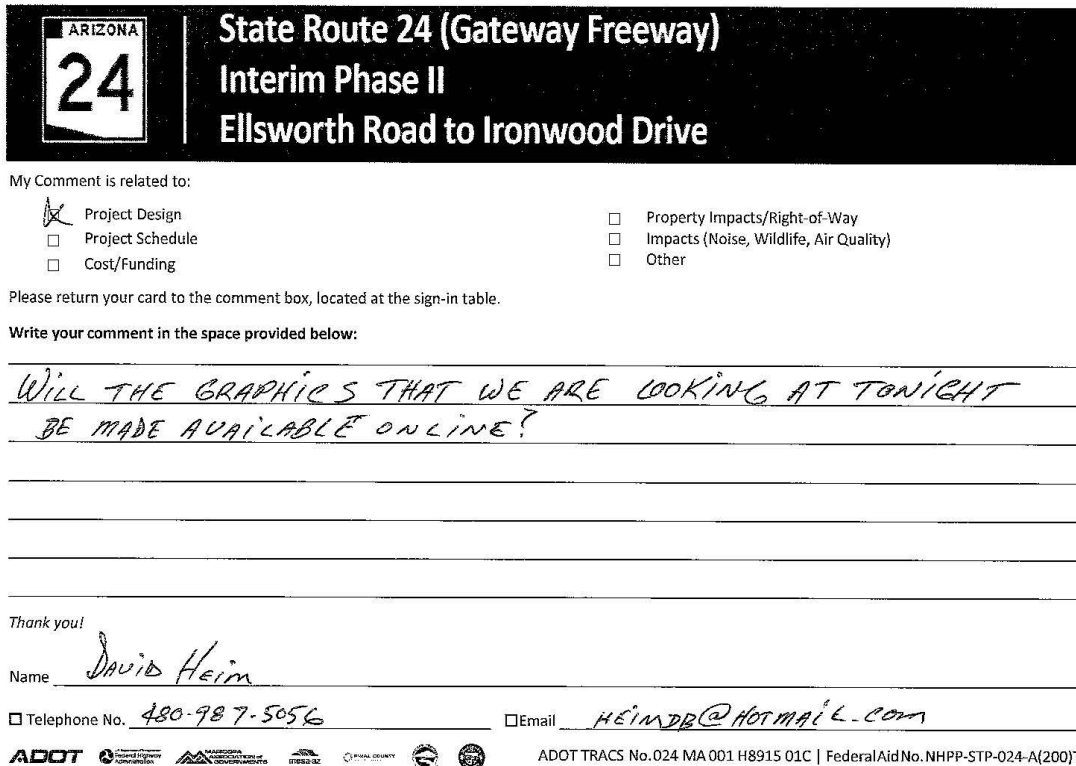 ARIZONA
24
State Route 24 (Gateway Freeway)
Interim Phase II
Ellsworth Road to Ironwood Drive
My Comment is related to:
Project Design
Project Schedule
Cost/Funding
Property Impacts/Right-of-Way
Impacts (Noise, Wildlife, Air Quality)
Other
Please return your card to the comment box, located at the sign-in table.
Write your comment in the space provided below:
WILL THE GRAPHICS THAT WE ARE LOOKING AT TONIGHT
BE MADE AVAILABLE ONLINE?
Thank you!
Name David Heim
Telephone No. 480-987-5056
Email HEIMDB@HOTMAIL.COM
ADOT
Federal Highway
Administration
MARICOPA
ASSOCIATION of
GOVERNMENTS
mesa·az
PINAL COUNTY
ADOT TRACS No.024 MA 001 H8915 01C | Federal Aid No. NHPP-STP-024-A(200)T